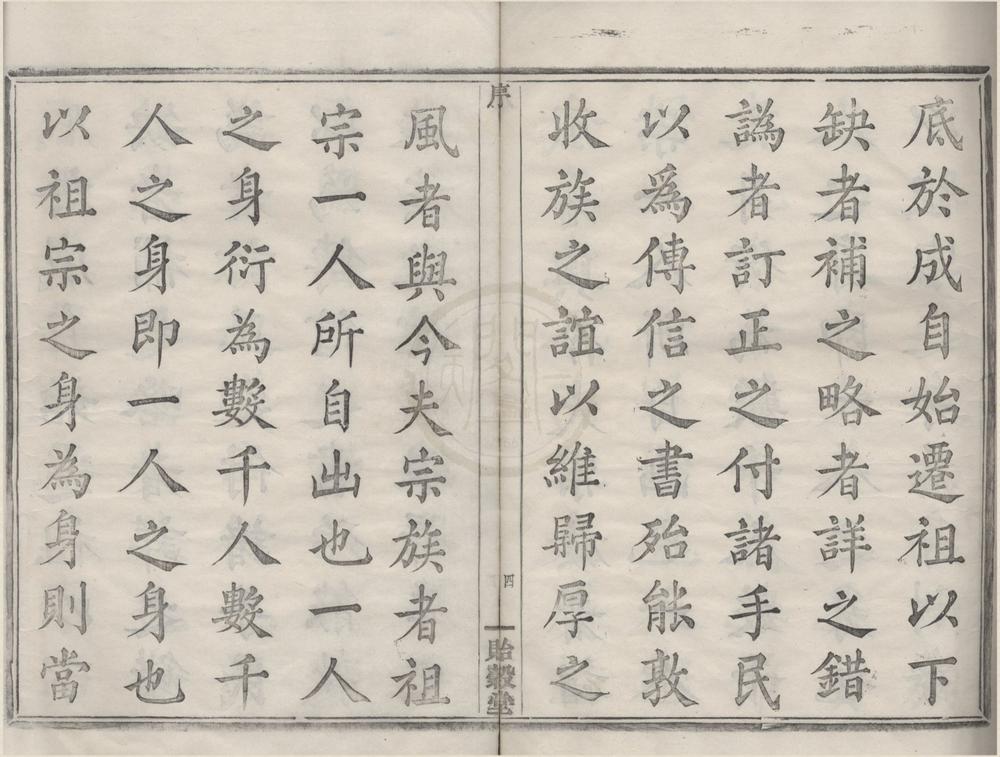 底於成自始遷祖以下
缺者補之略者詳之錯
譌者訂正之付諸手民
以爲傳信之書殆能敦
收族之誼以維歸厚之
序
四
貽穀堂
風者與今夫宗族者祖
宗一人所自出也一人
之身衍為數千人數千
人之身即一人之身也
以祖宗之身為身則當